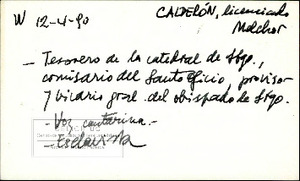 W 12-4-90
CALDERÓN, licenciado
Melchor
— Tesorero de la catedral de Stgo.,
comisario del Santo Oficio, provisor
y vicario gral. del obispado de Stgo.
— Voz cantarina.-
— Esclavista